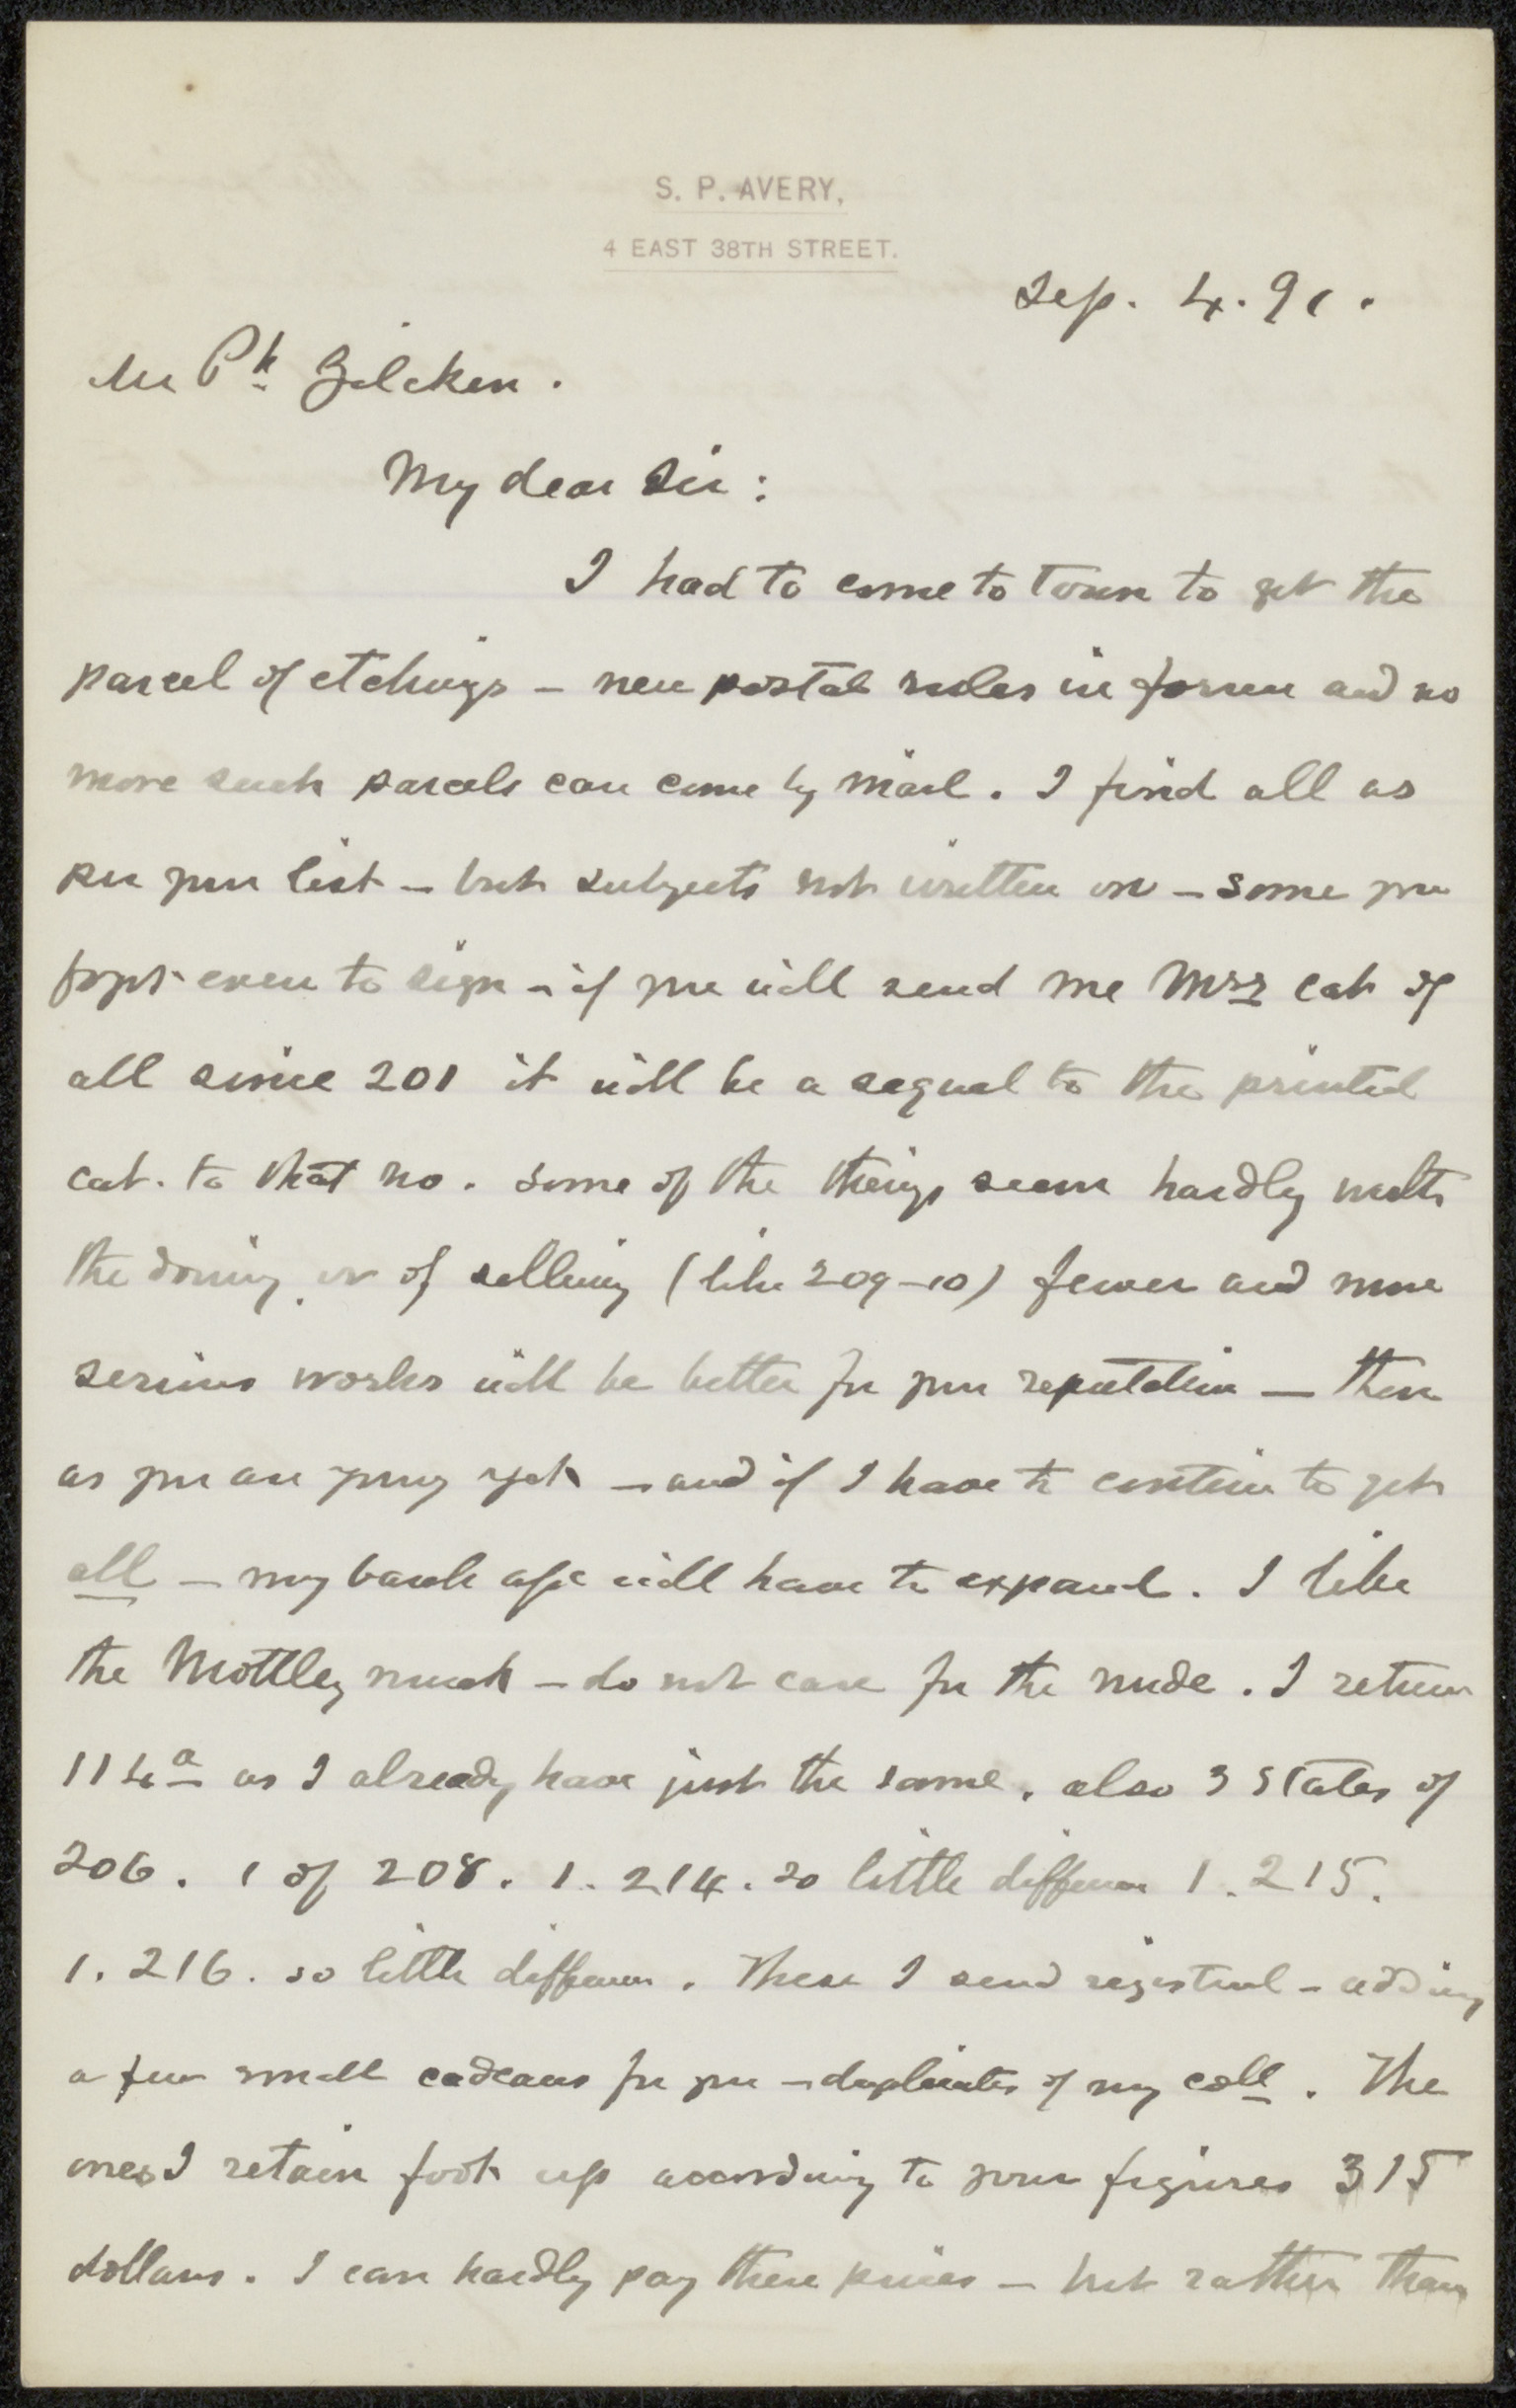 S. P. AVERY,
4 EAST 38TH STREET.
Sep. 4. 91.
Mr Ph Zilcken.
My dear Sir:
I had to come to town to get the
parcel of etchings – new postal rules in force and no
more such parcels can come by mail. I find all as
per your list – but subjects not written on – some you
forgot even to sign – if you will send me Mss cat of
all since 201 it will be a sequel to the printed
cat. to that no. Some of the things seem hardly worth
the doing or of selling (like 209–10) fewer and more
serious works will be better for your reputation –
as you are young yet – and if I have to continue to get
all – my bank a/c will have to expand. I like
the Mottley much – do not care for the nude. I return
114a as I already have just the same. also 3 states of
206. 1 of 208. 1. 214. so little difference 1. 215.
1. 216. so little difference. These I send registered – adding
a few small cadeaus for you – duplicates of my coll. The
ones I retain foot up according to your figures 315
dollars. I can hardly pay these prices – but rather than